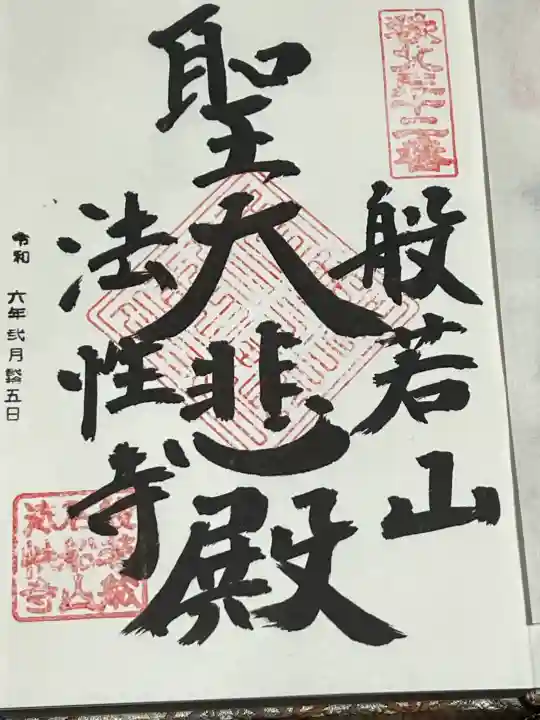 秩父三十二番
般若山
聖大悲殿
法性寺
令和 六年 弐月 五日
法性寺